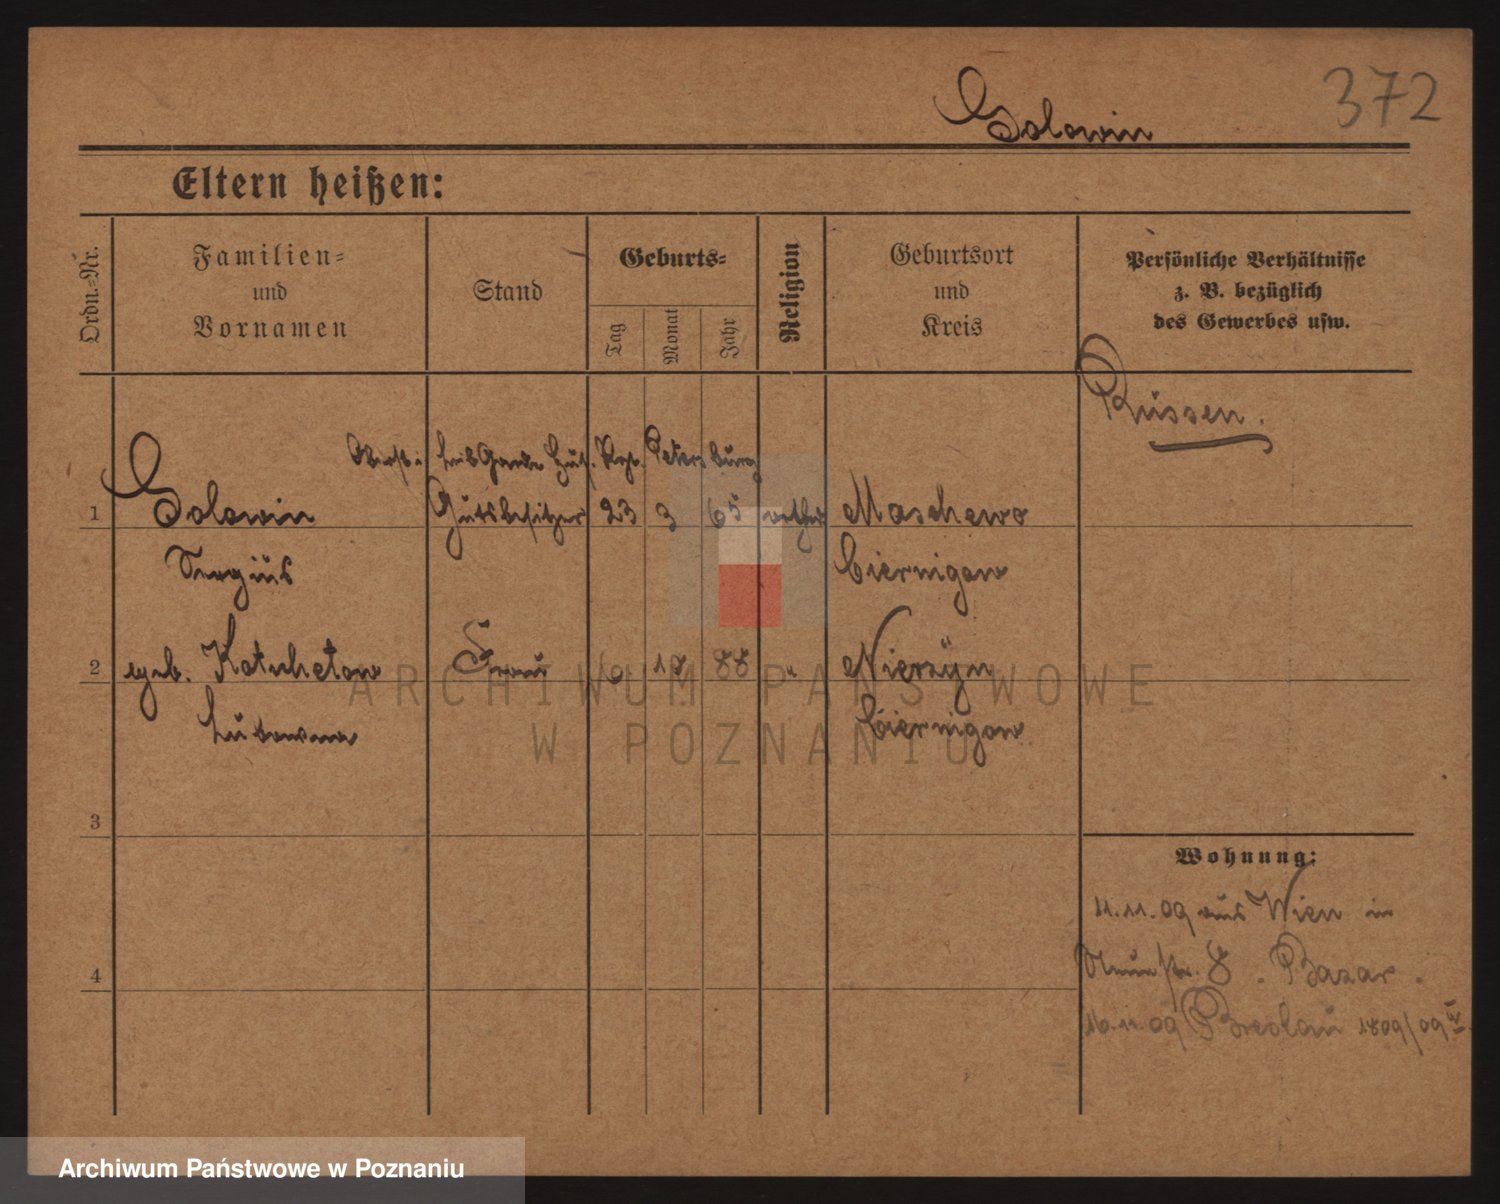 Golowin 372
Eltern heißen:
Ordn.-Nr.
Familien-
und
Vornamen
Stand
Geburts-
Tag
Monat
Jahr
Religion
Geburtsort
und
Kreis
Persönliche Verhältnisse
z. B. bezüglich
des Gewerbes usw.
Russen.
Leib Garde Hus. Rgt. Petersburg
1 Golowin Gutsbesitzer 23 3 65 Maschewo
Sergius Ciernigow
2 geb. Frau 6 88 " Nierzyn
Ciernigow
3
Wohnung:
11.11.09 aus Wien in
8. Bazar.
4
16.11.09 Breslau 1809/09
ARCHIWUM PAŃSTWOWE
W POZNANIU
Archiwum Państwowe w Poznaniu